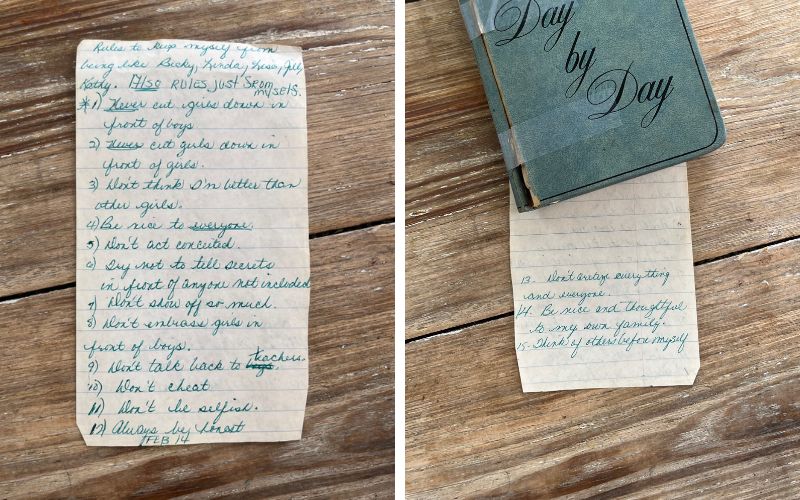 Rules to keep myself from
being like Becky, Linda, Lisa, Jill,
Kathy. Also RULES, JUST FROM
MYSELF.
*1) Never cut girls down in
front of boys
2) Never cut girls down in
front of girls.
3) Don't think I'm better than
other girls.
4) Be nice to everyone.
5) Don't act conceited.
6) Try not to tell secrets
in front of anyone not included
7) Don't show off so much.
8) Don't embrass girls in
front of boys.
9) Don't talk back to boys. teachers.
10) Don't cheat
11) Don't be selfish.
12) Always be honest
FEB 14
Day
by
Day
13. Don't critize everything
and everyone.
14. Be nice and thoughtful
to my own family.
15. Think of others before myself